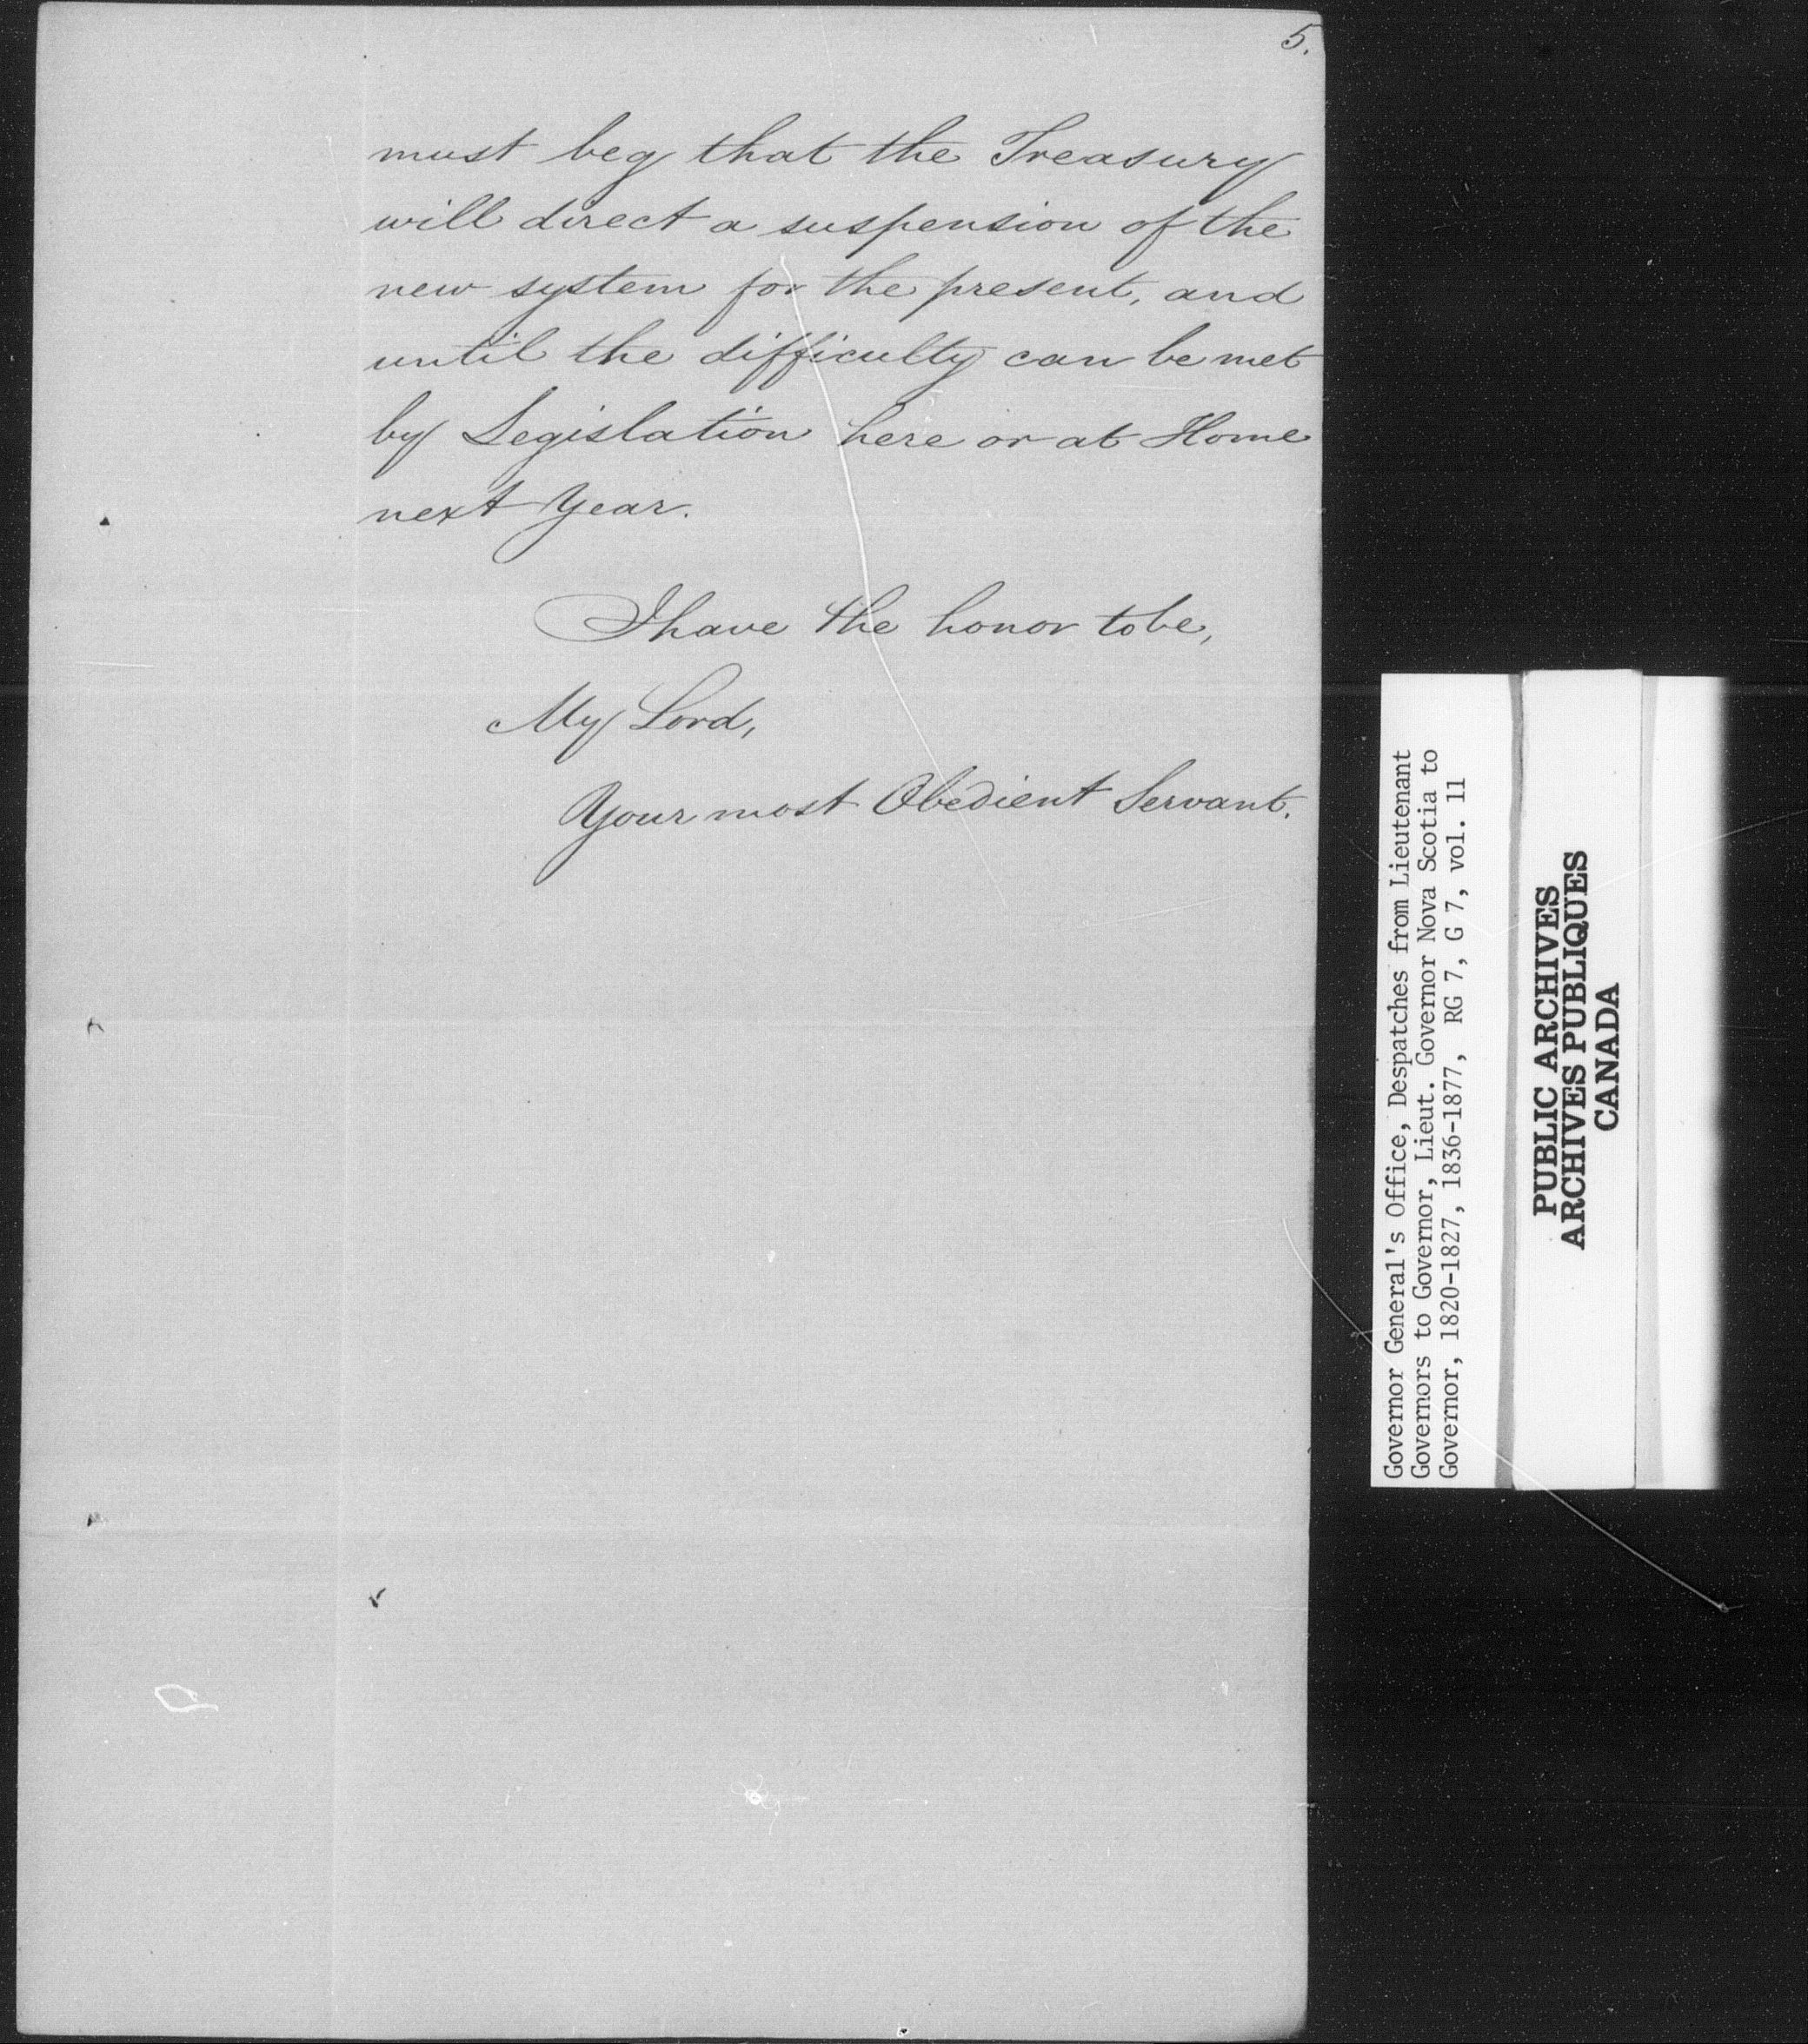 5.
must beg that the Treasury
will direct a suspension of the
new system for the present, and
until the difficulty can be met
by Legislation here or at Home
next Year.
I have the honor to be,
My Lord,
Your most Obedient Servant.
Governor General's Office, Despatches from Lieutenant
Governors to Governor, Lieut. Governor Nova Scotia to
Governor, 1820-1827, 1836-1877, RG 7, G 7, vol. 11
PUBLIC ARCHIVES
ARCHIVES PUBLIQUES
CANADA